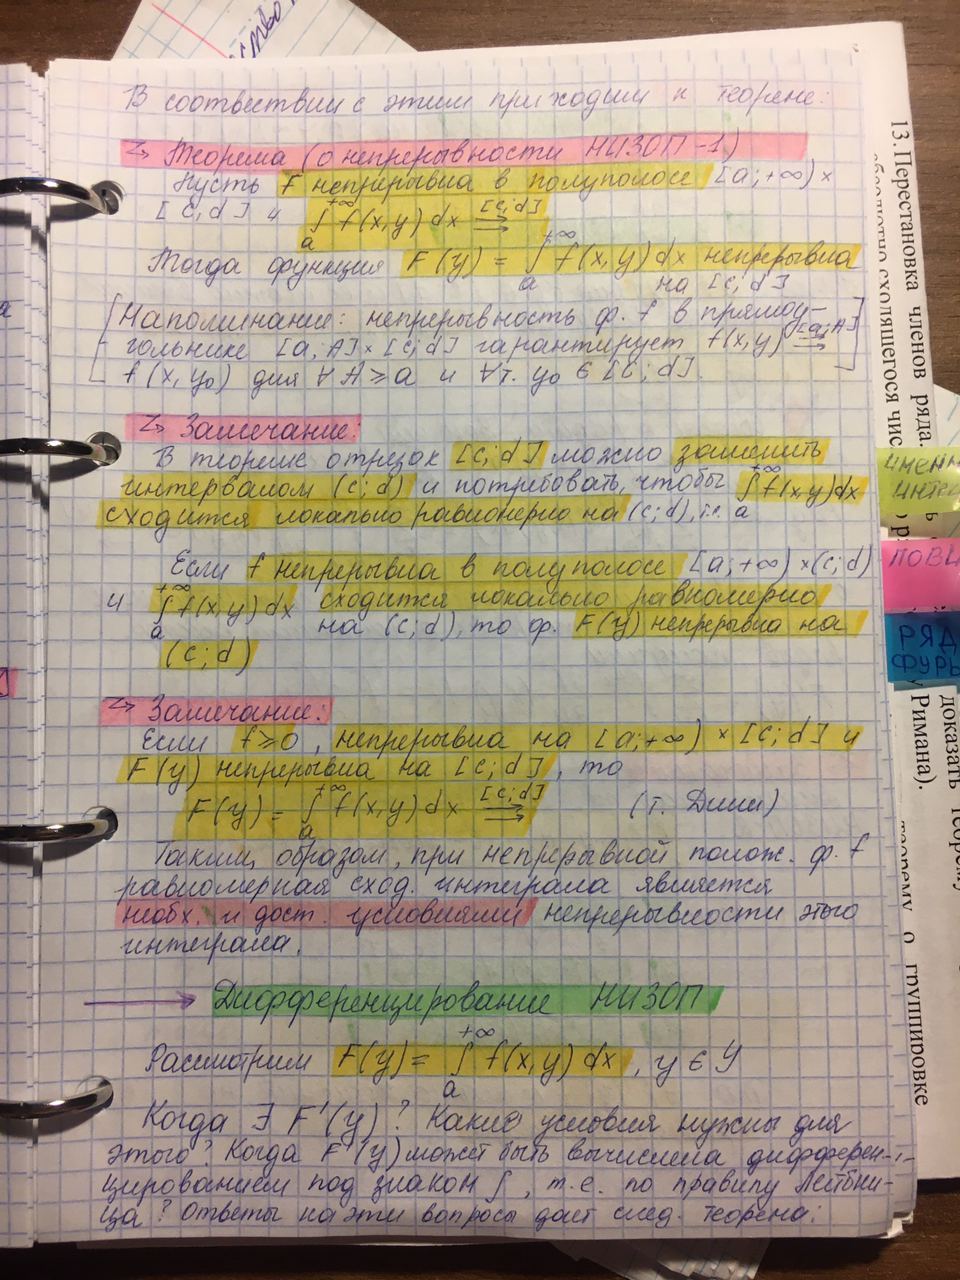 В соотвествии с этим приходим к теореме:
Теорема (о непрерывности НИЗОП-1)
Пусть f непрерывна в полуполосе [a;+∞)×
[c,d] и ∫ₐ^{+∞} f(x,y)dx ⇉^{[c;d]}
Тогда функция F(y) = ∫ₐ^{+∞} f(x,y)dx непрерывна
на [c;d]
Напоминание: непрерывность ф. f в прямоу-
гольнике [a;A]×[c;d] гарантирует f(x,y) ⇉^{[a;A]}
f(x,y₀) для ∀A≥a и ∀т. y₀ ∈ [c;d].
Замечание:
В теореме отрезок [c;d] можно заменить
интервалом (c;d) и потребовать, чтобы ∫ₐ^{+∞} f(x,y)dx
сходится локально равномерно на (c;d), т.е.
Если f непрерывна в полуполосе [a;+∞)×(c;d)
и ∫ₐ^{+∞} f(x,y)dx сходится локально равномерно
на (c;d), то ф. F(y) непрерывна на
(c;d)
Замечание:
Если f≥0, непрерывна на [a;+∞)×[c;d] и
F(y) непрерывна на [c;d], то
F(y) = ∫ₐ^{+∞} f(x,y)dx ⇉^{[c;d]} (т. Дини)
Таким образом, при непрерывной полож. ф. f
равномерная сход. интеграла является
необх. и дост. условиями непрерывности этого
интеграла.
→ Дифференцирование НИЗОП
Рассмотрим F(y) = ∫ₐ^{+∞} f(x,y)dx, y∈Y
Когда ∃ F'(y)? Какие условия нужны для
этого? Когда F'(y) может быть вычислена дифферен-
цированием под знаком ∫, т.е. по правилу Лейбни-
ца? Ответы на эти вопросы дает след. теорема:
13. Перестановка членов ряда.
абсолютно сходящегося чис
Римана).
доказать теорему
теорему о группировке
ПОВ
РЯД
ФУРЬ